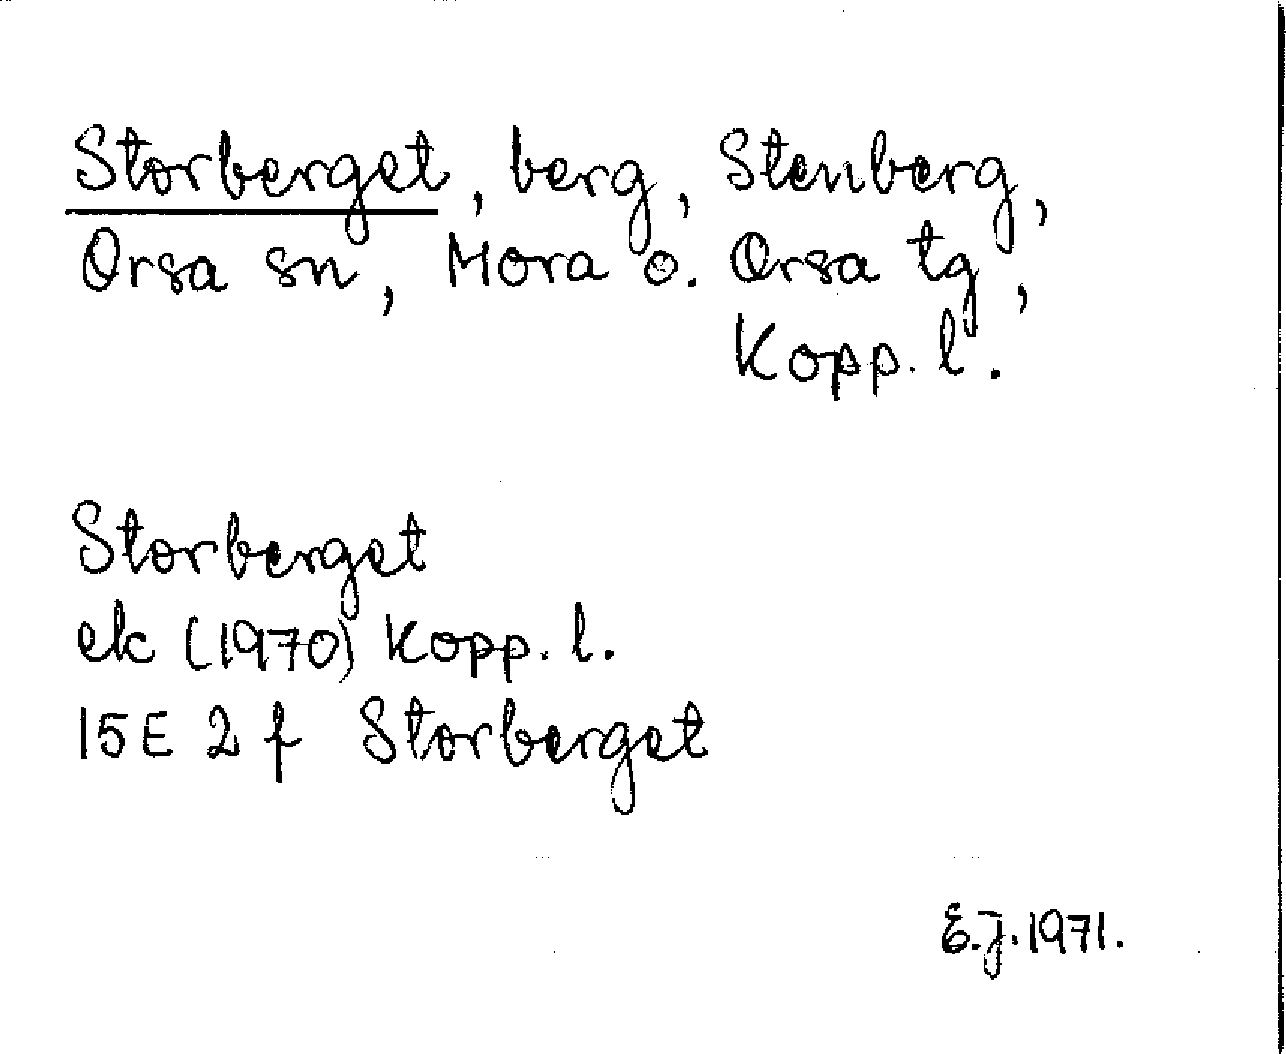 Storberget, berg, Stenberg,
Orsa sn, Mora o. Orsa tg,
Kopp. l.
Storberget
ek (1970) Kopp. l.
15E 2f Storberget
E.J. 1971.